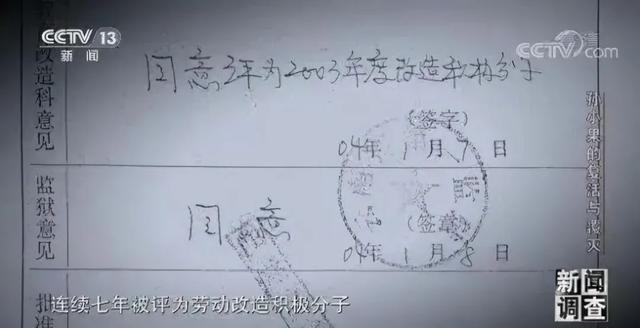 CCTV 13
新闻
CCTV.com
改造科意见
同意评为2003年度改造积极分子
(签字)
04年1月7日
监狱意见
同意
(签章)
04年1月8日
批准
孙小果的复活与毁灭
连续七年被评为劳动改造积极分子
新闻
调查